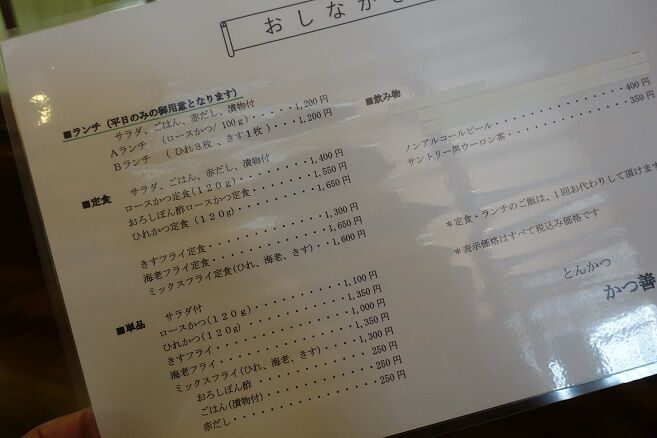 おしながき
■ランチ（平日のみの御用意となります）
サラダ、ごはん、赤だし、漬物付
Aランチ （ロースかつ/100g）・・・・・1,200円
Bランチ （ひれ3枚、きす1枚）・・・・・1,200円
■定食 サラダ、ごはん、赤だし、漬物付
ロースかつ定食(120g)・・・・・・・・1,400円
おろしぽん酢ロースかつ定食・・・・・・・1,550円
ひれかつ定食(120g)・・・・・・・・・1,650円
きすフライ定食・・・・・・・・・・・・1,300円
海老フライ定食・・・・・・・・・・・・1,650円
ミックスフライ定食(ひれ、海老、きす)・・・1,600円
■単品 サラダ付
ロースかつ(120g)・・・・・・・・・・1,100円
ひれかつ(120g)・・・・・・・・・・・1,350円
きすフライ・・・・・・・・・・・・・・1,000円
海老フライ・・・・・・・・・・・・・・1,350円
ミックスフライ(ひれ、海老、きす)・・・・・1,300円
おろしぽん酢・・・・・・・・・・・・・250円
ごはん(漬物付)・・・・・・・・・・・・250円
赤だし・・・・・・・・・・・・・・・・250円
■飲み物
ノンアルコールビール・・・・・・・・・・400円
サントリー黒ウーロン茶・・・・・・・・・350円
＊定食・ランチのご飯は、1回お代わりして頂けます
＊表示価格はすべて税込み価格です
とんかつ
かつ善